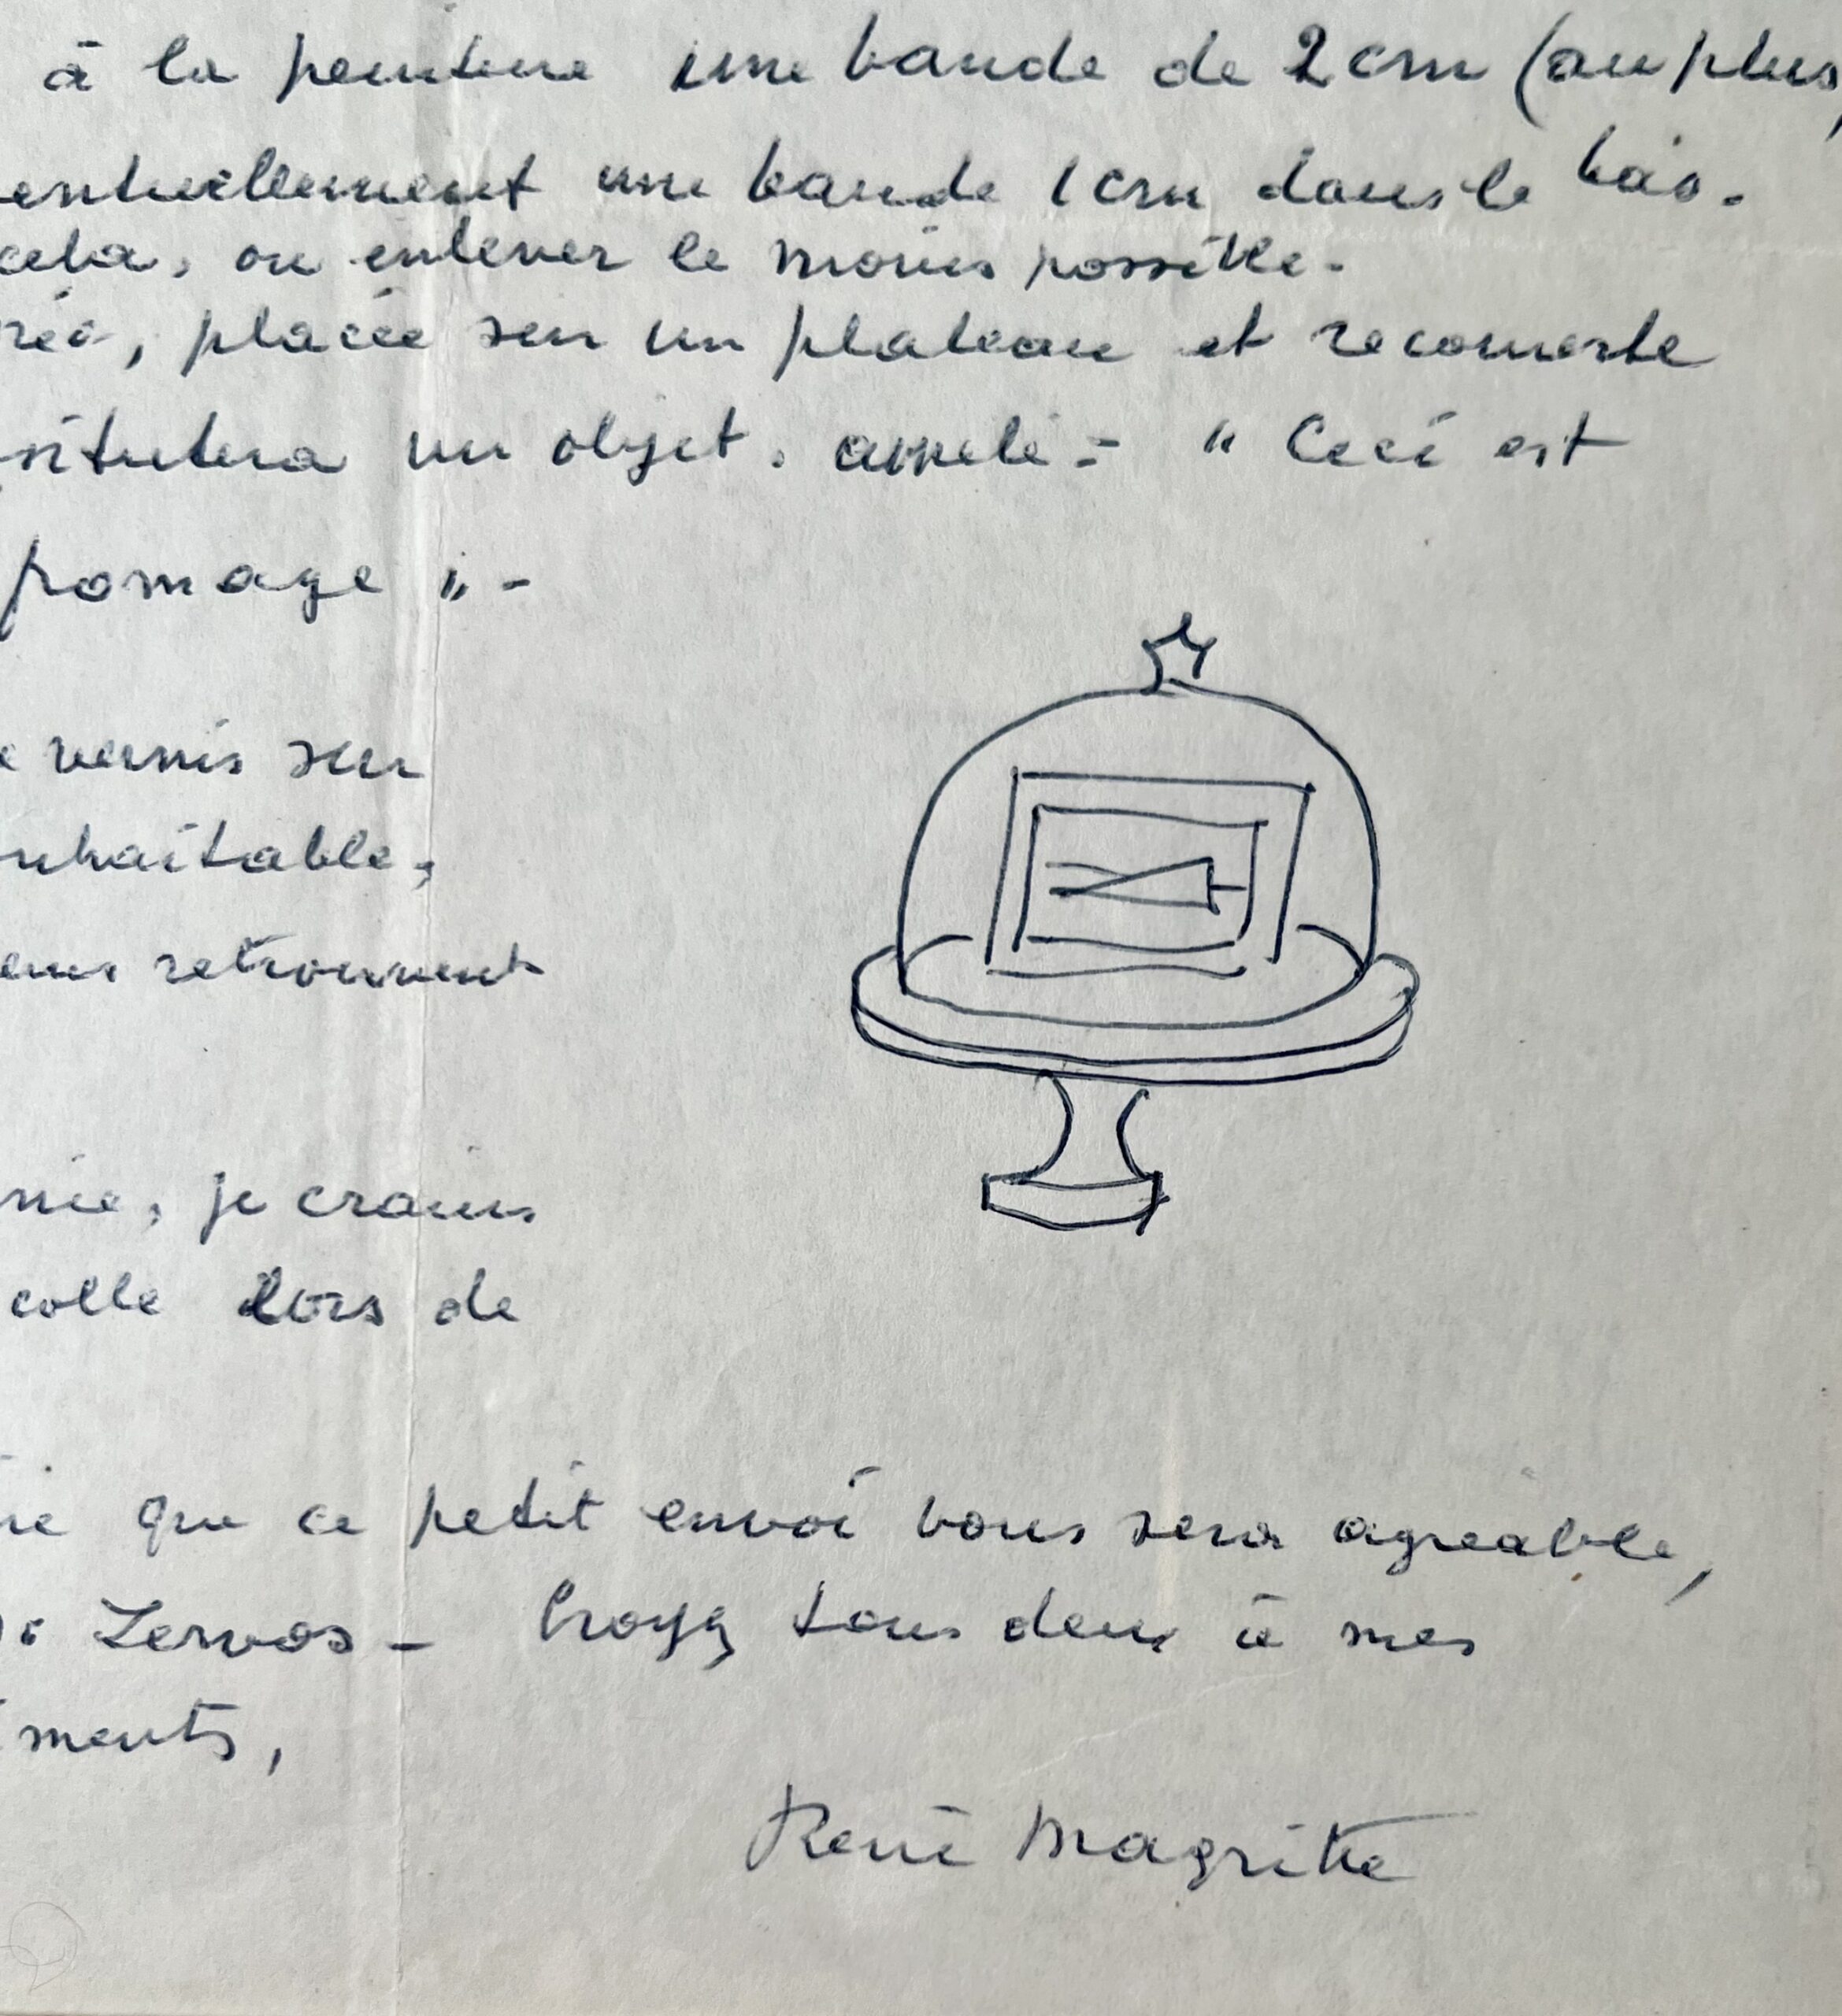 à la peinture une bande de 2 cm (au plus)
entuellement une bande 1 cm dans le bas.
cela, on enlever le moins possible.
rée, placée sur un plateau et recouverte
stituera un objet, appelé : " Ceci est
fromage " -
e vernis sur
uhaitable,
retrouvent
nie, je crains
colle lors de
re que ce petit envoi vous sera agréable,
Zervos - Croyez tous deux à mes
ments,
René Magritte